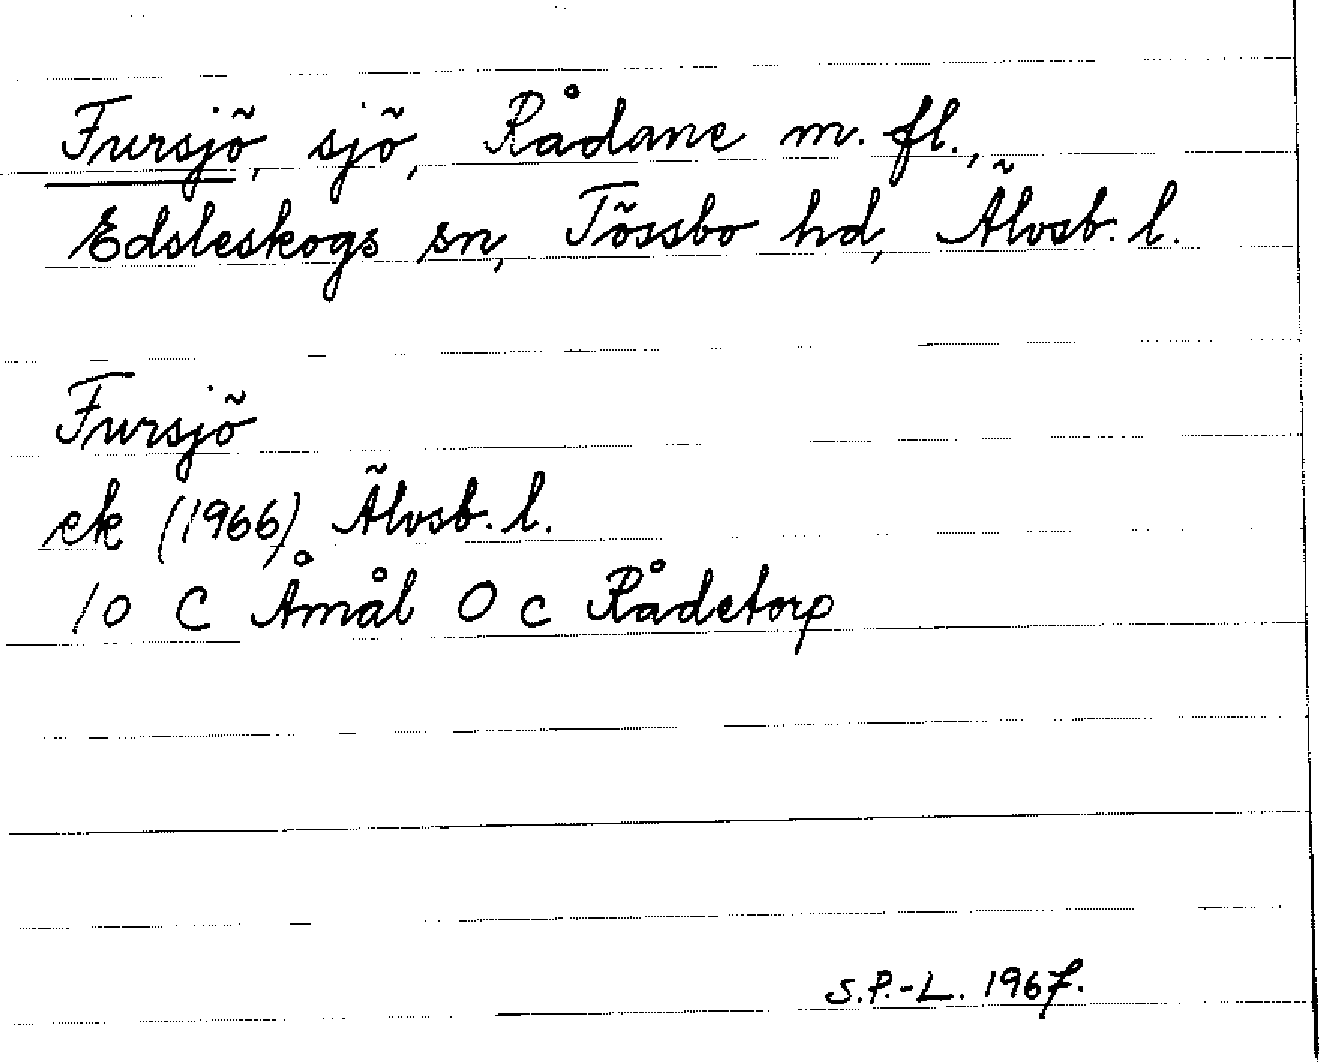 Fursjö, sjö, Rådane m. fl.,
Edsleskogs sn, Tössbo hd, Älvsb. l.
Fursjö
ek (1966) Älvsb. l.
10 C Åmål 0 c Rådetorp
S.P.-L. 1967.